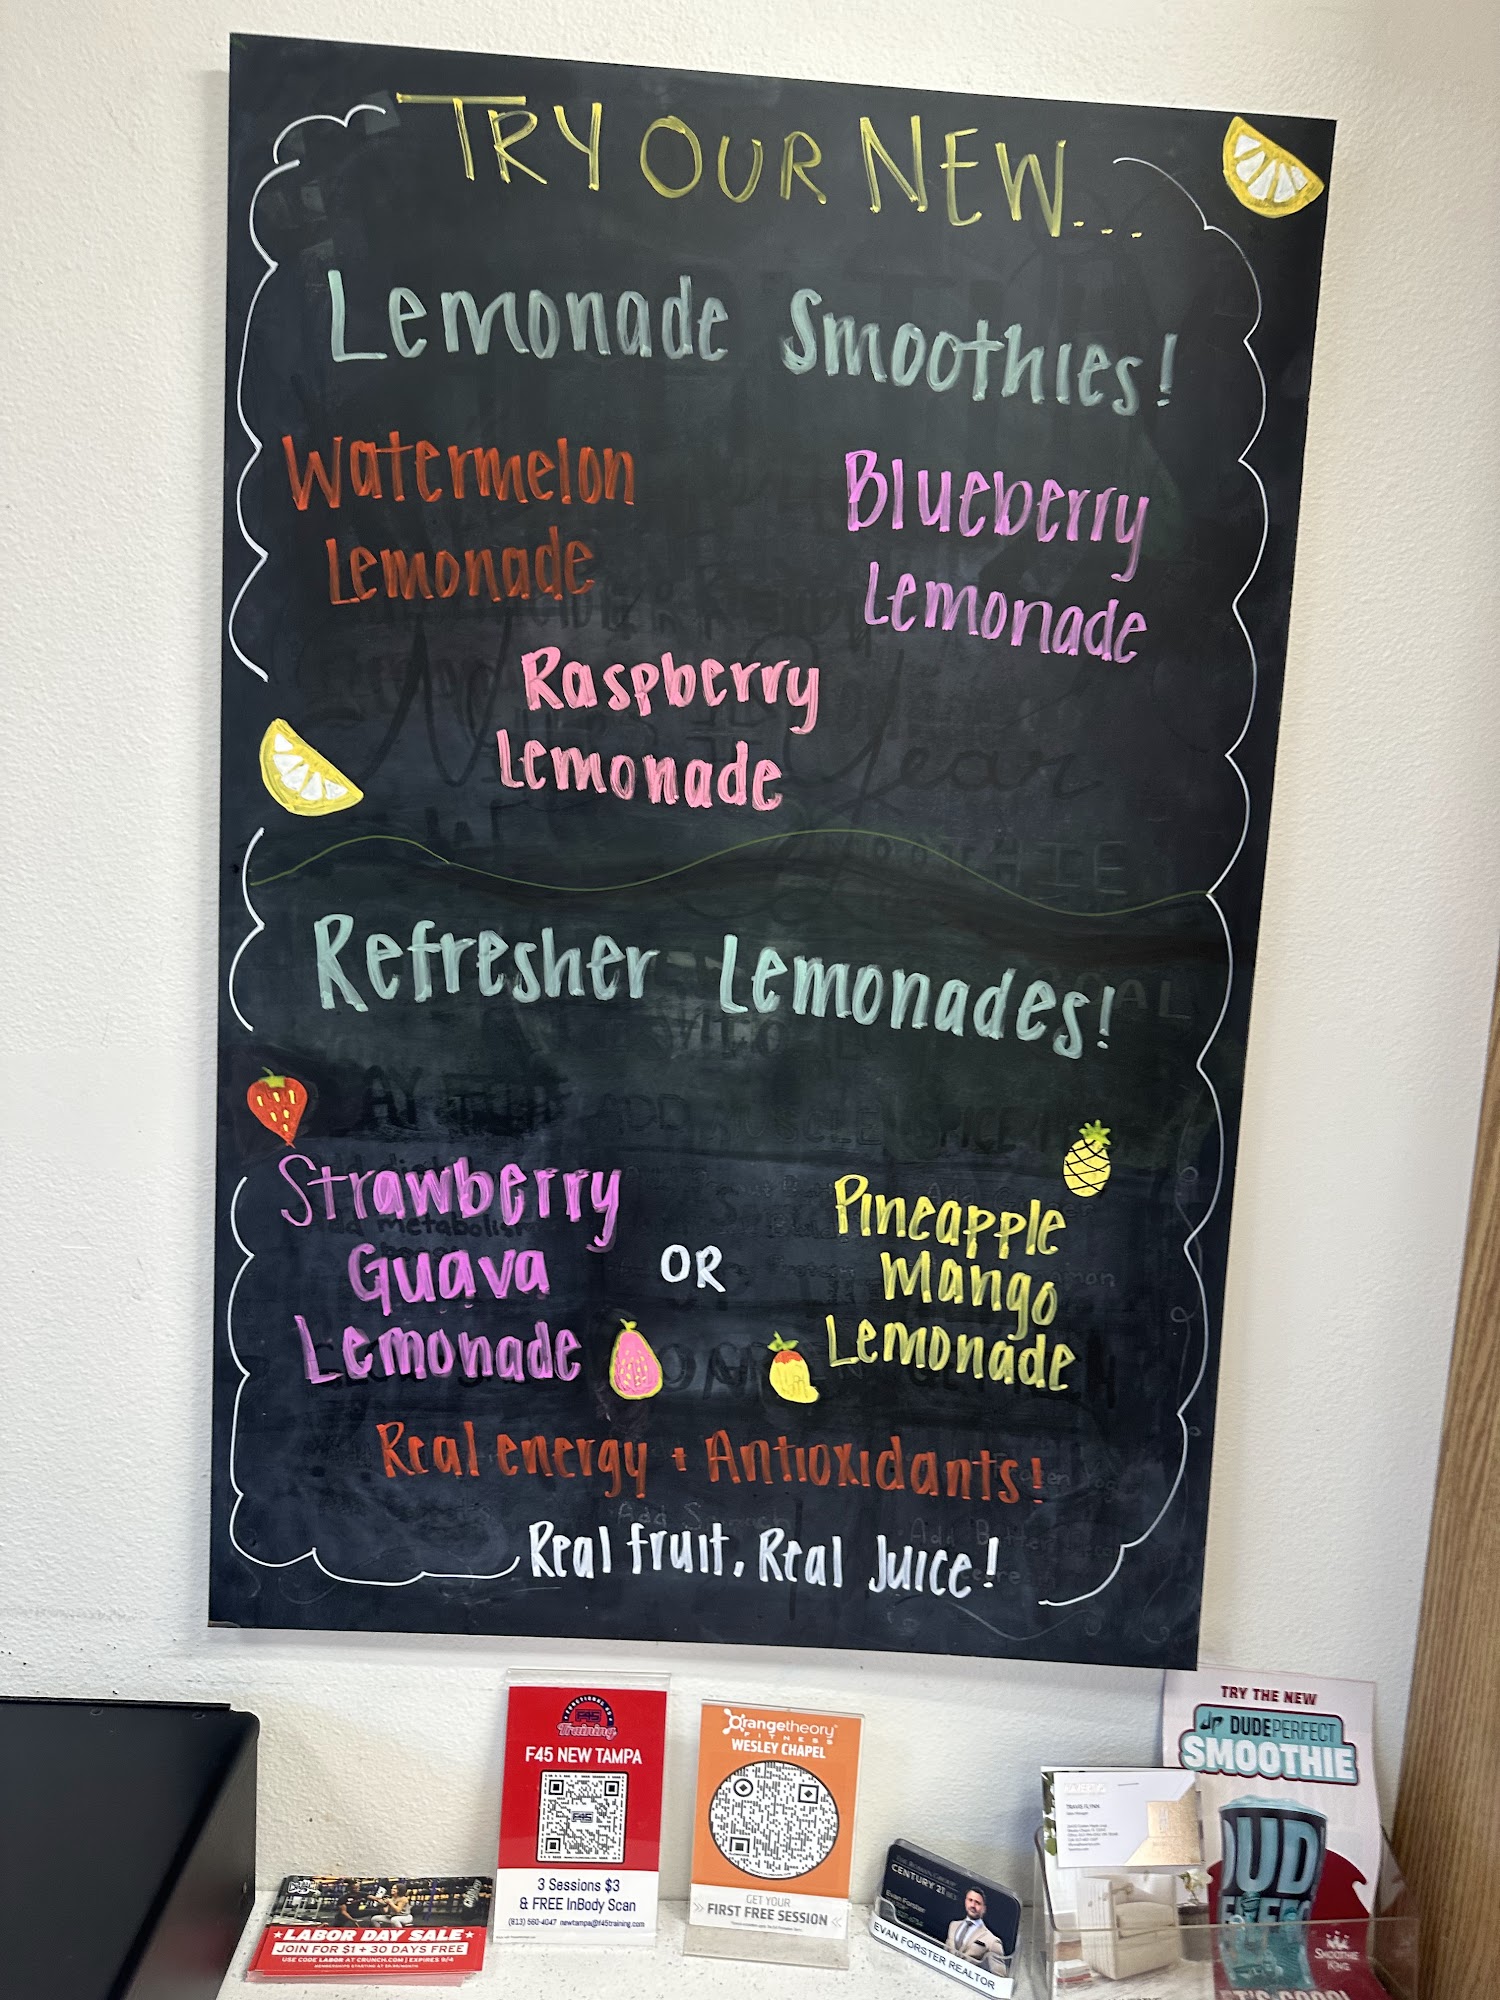 TRY OUR NEW...
Lemonade Smoothies!
Watermelon
Lemonade
Blueberry
Lemonade
Raspberry
Lemonade
Refresher Lemonades!
Strawberry
Guava
Lemonade
OR
Pineapple
Mango
Lemonade
Real energy + Antioxidants!
Real fruit, Real Juice!
F45
Training
F45 NEW TAMPA
F45
3 Sessions $3
& FREE InBody Scan
(813) 560-4047 newtampa@f45training.com
Orangetheory
FITNESS
WESLEY CHAPEL
GET YOUR
FIRST FREE SESSION
LABOR DAY SALE
JOIN FOR $1 + 30 DAYS FREE
USE CODE LABOR AT CRUNCH.COM | EXPIRES 9/4
CENTURY 21
Evan Forster
EVAN FORSTER REALTOR
TRAVIS FLYNN
TRY THE NEW
DUDE PERFECT
SMOOTHIE
SMOOTHIE
KING